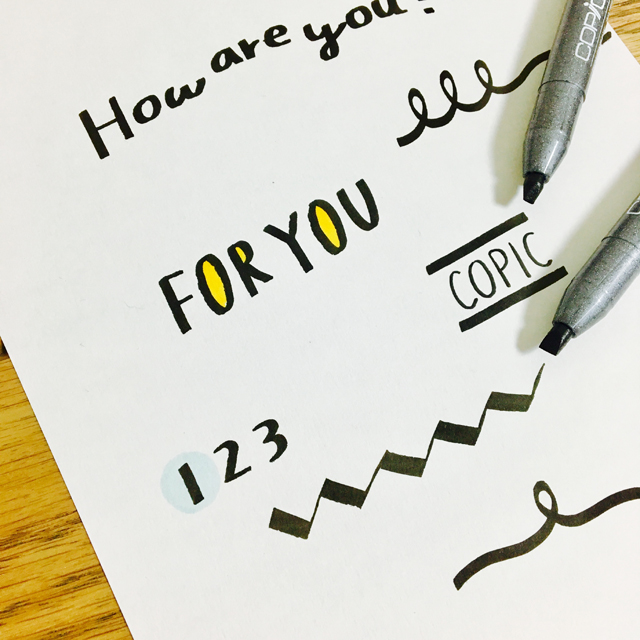 How are you?
FOR YOU
COPIC
COPIC
123